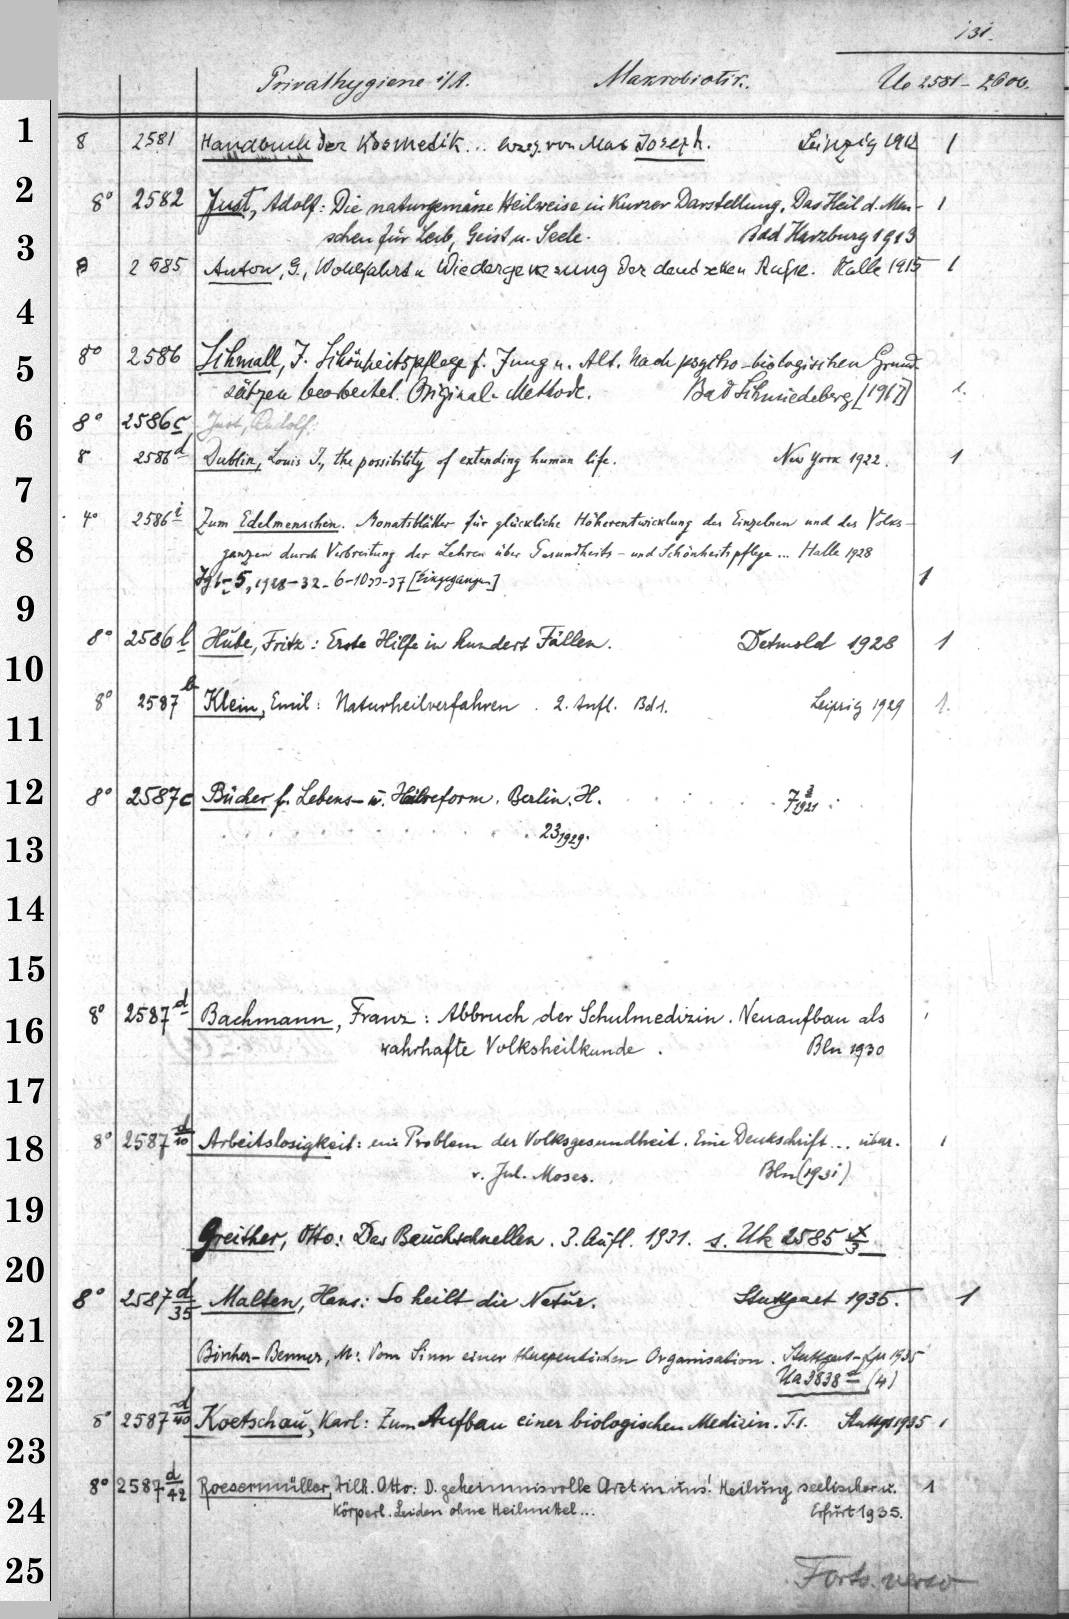 131.
Privathygiene i/A. Makrobiotik. Uo 2581 - 2600.
1 8 2581 Handbuch der Kosmetik... hrsg. von Max Joseph. Leipzig 1912 1
2 8° 2582 Just, Adolf: Die naturgemässe Heilweise in kurzer Darstellung. Das Heil d. Men- 1
3 schen für Leib, Geist u. Seele. Bad Harzburg 1913
8 2585 Anton, G., Wohlfahrt u Wiedergenesung der deutschen Halle 1915 1
4
5 8° 2586 Schmall, J. Schönheitspflege f. Jung u. Alt. Nach psycho-biologischen Grund-
sätzen bearbeitet. Original-Methode. Bad Schmiedeberg [1917] 1.
6 8° 2586c, Just, Rudolf:
8 2586d Dublin, Louis I., the possibility of extending human life. New York 1922. 1
7 4° 2586i Zum Edelmenschen. Monatsblätter für glückliche Höherentwicklung des Einzelnen und des Volks-
8 ganzen durch Verbreitung der Lehren über Gesundheits- und Schönheitspflege ... Halle 1928
Jg 1-5, 1928-32- 6-10 33-37 [Eingegangen] 1
9
8° 2586 l Hübe, Fritz: Erste Hilfe in hundert Fällen. Detmold 1928 1
10
8° 2587b Klein, Emil: Naturheilverfahren. 2. Aufl. Bd 1. Leipzig 1929 1.
11
12 8° 2587c Bücher f. Lebens- u. Heilreform. Berlin. H. 7 1921
13 23 1929.
14
15
16 8° 2587d Bachmann, Franz: Abbruch der Schulmedizin. Neuaufbau als 1
wahrhafte Volksheilkunde. Bln 1930
17
18 8° 2587 d/10 Arbeitslosigkeit: ein Problem der Volksgesundheit. Eine Denkschrift ... überr.
v. Jul. Moses. Bln (1931) 1
19 Greither, Otto: Das Bauchschnellen. 3. Aufl. 1931. s. Uk 2585 x/3
20
8° 2587 d/35 Malten, Hans: So heilt die Natur. Stuttgart 1935. 1
21 Bircher-Benner, M: Vom Sinn einer therapeutischen Organisation. Stuttgart-Lpz 1935
22 Ua 3838 (4)
8° 2587 d/40 Koetschau, Karl: Zum Aufbau einer biologischen Medizin. T. 1. Stuttg 1935 1
23
24 8° 2587 d/42 Roesermüller, Wilh. Otto: D. geheimnisvolle Arzt in uns! Heilung seelischer u. 1
Körperl. Leiden ohne Heilmittel ... Erfurt 1935.
25 Forts. verso